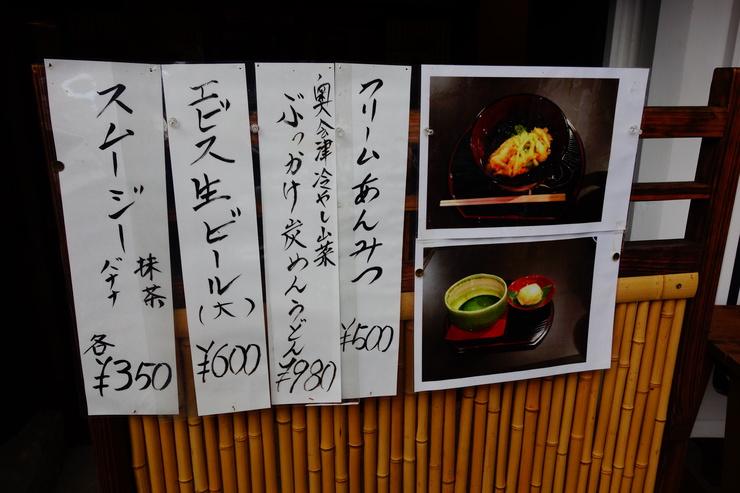 クリームあんみつ
¥500
奥会津冷やし山菜
ぶっかけ炭めんうどん
¥980
エビス生ビール(大)
¥600
スムージー
抹茶
バナナ
各
¥350